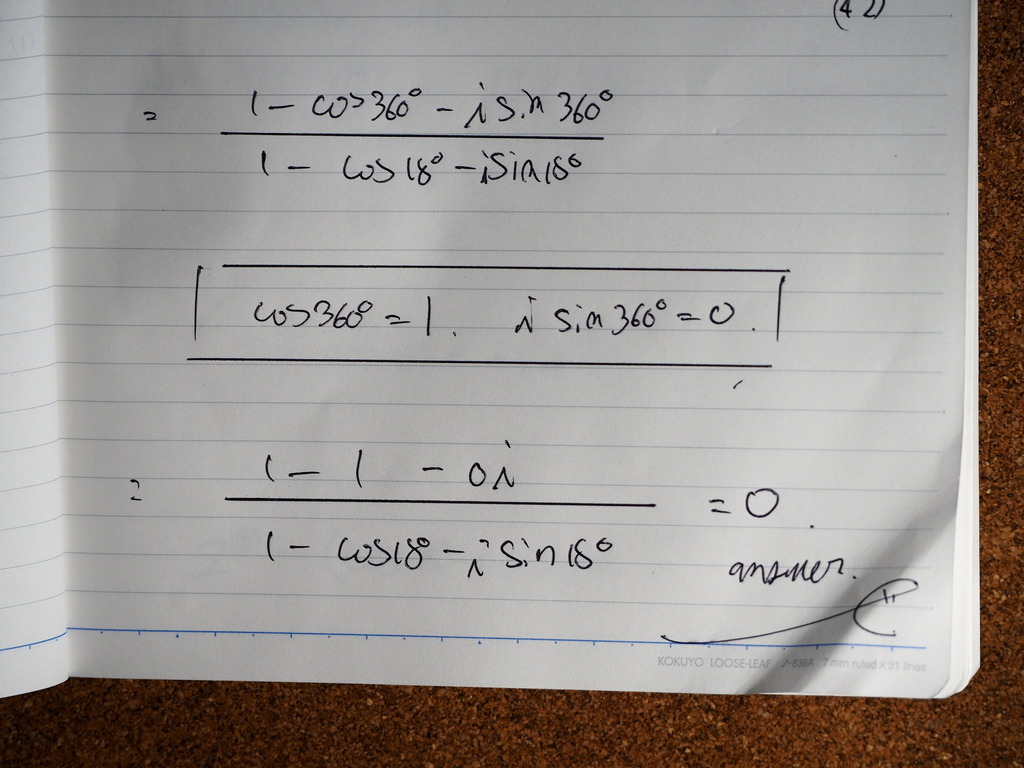 (42)
= 1 - cos 360° - i sin 360°
1 - cos 18° - i sin 18°
cos 360° = 1. i sin 360° = 0.
= 1 - 1 - 0i = 0.
1 - cos 18° - i sin 18°
answer.
KOKUYO LOOSE-LEAF ノ-836A 7 mm ruled × 31 lines